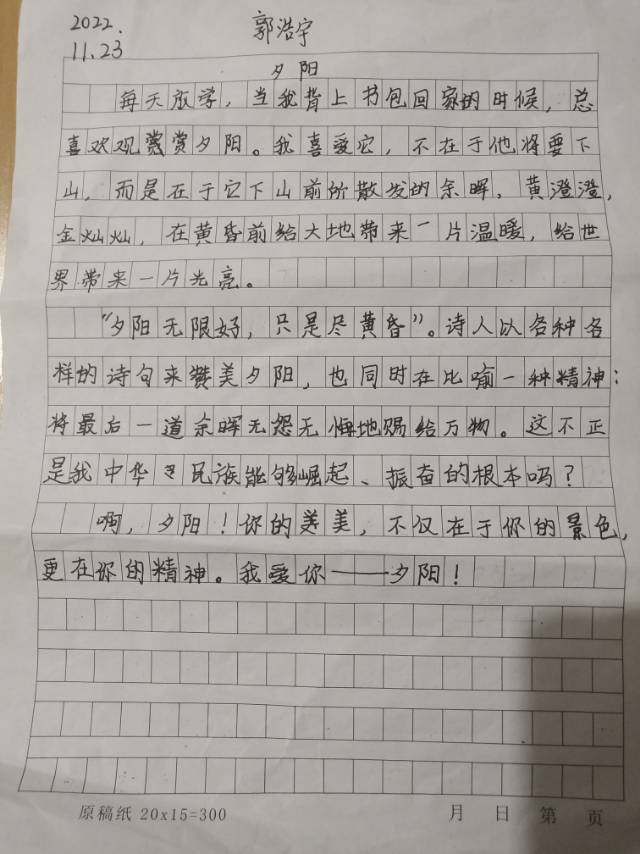 2022.
郭浩宇
11.23
夕阳
每天放学，当我背上书包回家的时候，总
喜欢观赏夕阳。我喜爱它，不在于他将要下
山，而是在于它下山前所散发的余晖，黄澄澄，
金灿灿，在黄昏前给大地带来一片温暖，给世
界带来一片光亮。
“夕阳无限好，只是尽黄昏”。诗人以各种各
样的诗句来赞美夕阳，也同时在比喻一种精神：
将最后一道余晖无怨无悔地赐给万物。这不正
是我中华民族能够崛起、振奋的根本吗？
啊，夕阳！你的美，不仅在于你的景色，
更在你的精神。我爱你——夕阳！
原稿纸 20x15=300
月 日 第 页